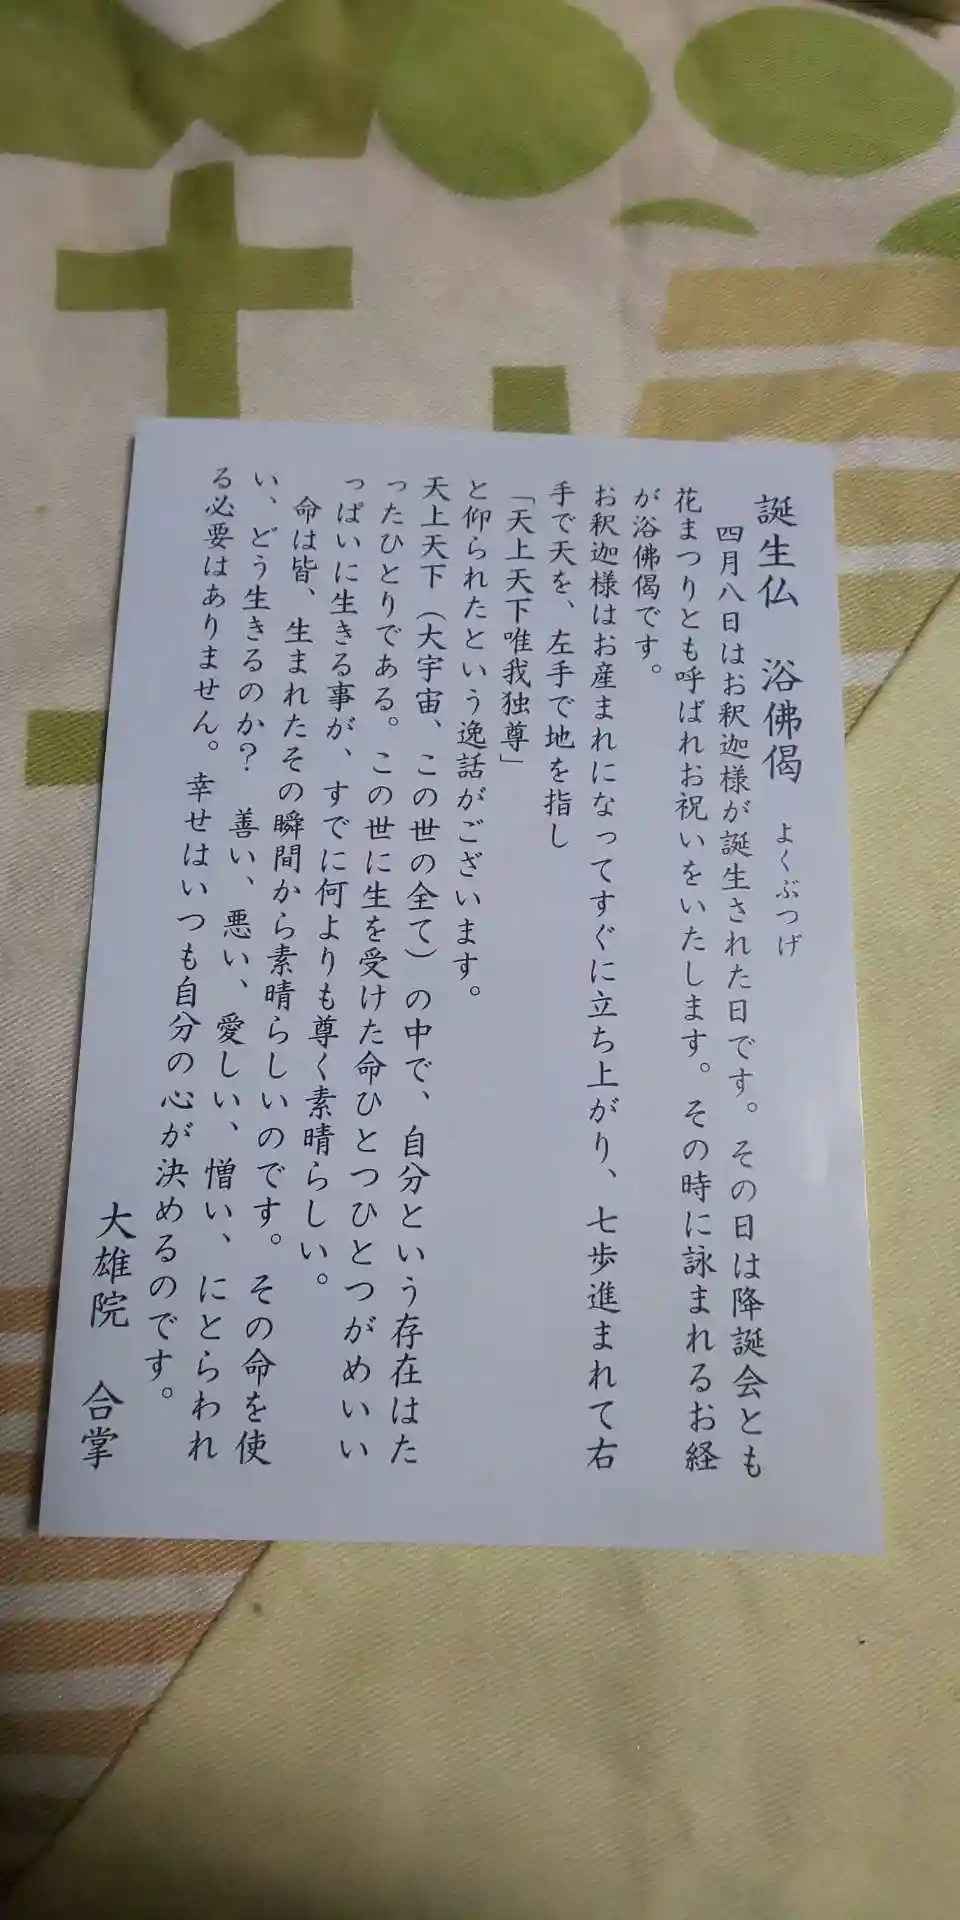 誕生仏　浴佛偈　よくぶつげ
四月八日はお釈迦様が誕生された日です。その日は降誕会とも
花まつりとも呼ばれお祝いをいたします。その時に詠まれるお経
が浴佛偈です。
お釈迦様はお産まれになってすぐに立ち上がり、七歩進まれて右
手で天を、左手で地を指し
「天上天下唯我独尊」
と仰られたという逸話がございます。
天上天下（大宇宙、この世の全て）の中で、自分という存在はた
ったひとりである。この世に生を受けた命ひとつひとつがめいい
っぱいに生きる事が、すでに何よりも尊く素晴らしい。
命は皆、生まれたその瞬間から素晴らしいのです。その命を使
い、どう生きるのか？　善い、悪い、愛しい、憎い、にとらわれ
る必要はありません。幸せはいつも自分の心が決めるのです。
大雄院　合掌